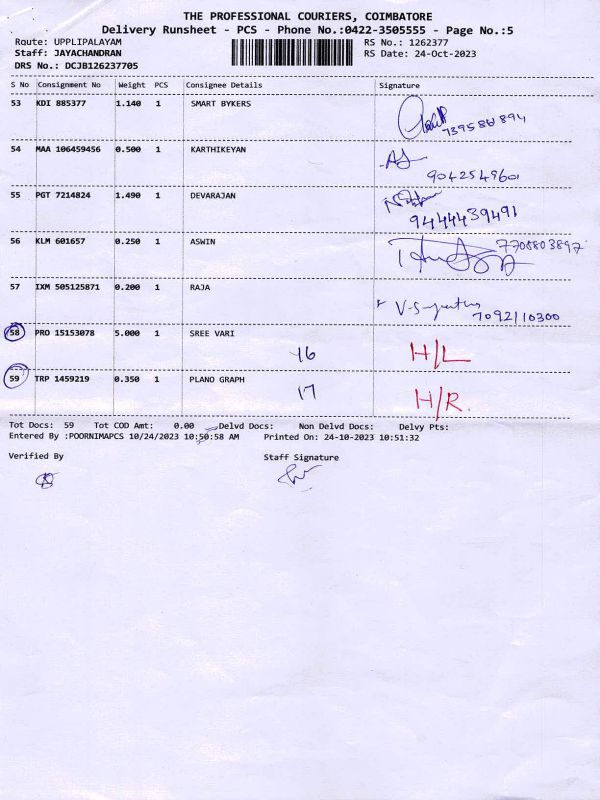 THE PROFESSIONAL COURIERS, COIMBATORE
Delivery Runsheet - PCS - Phone No.:0422-3505555 - Page No.:5
Route: UPPLIPALAYAM RS No.: 1262377
Staff: JAYACHANDRAN RS Date: 24-Oct-2023
DRS No.: DCJB126237705
S No Consignment No Weight PCS Consignee Details Signature
53 KDI 885377 1.140 1 SMART BYKERS
54 MAA 106459456 0.500 1 KARTHIKEYAN
9042549601
55 PGT 7214824 1.490 1 DEVARAJAN
9444439491
56 KLM 601657 0.250 1 ASWIN 7708803897
57 IXM 505125871 0.200 1 RAJA
7092110300
58 PRO 15153078 5.000 1 SREE VARI
16 H/L
59 TRP 1459219 0.350 1 PLANO GRAPH
17 H/R.
Tot Docs: 59 Tot COD Amt: 0.00 Delvd Docs: Non Delvd Docs: Delvy Pts:
Entered By :POORNIMAPCS 10/24/2023 10:50:58 AM Printed On: 24-10-2023 10:51:32
Verified By Staff Signature